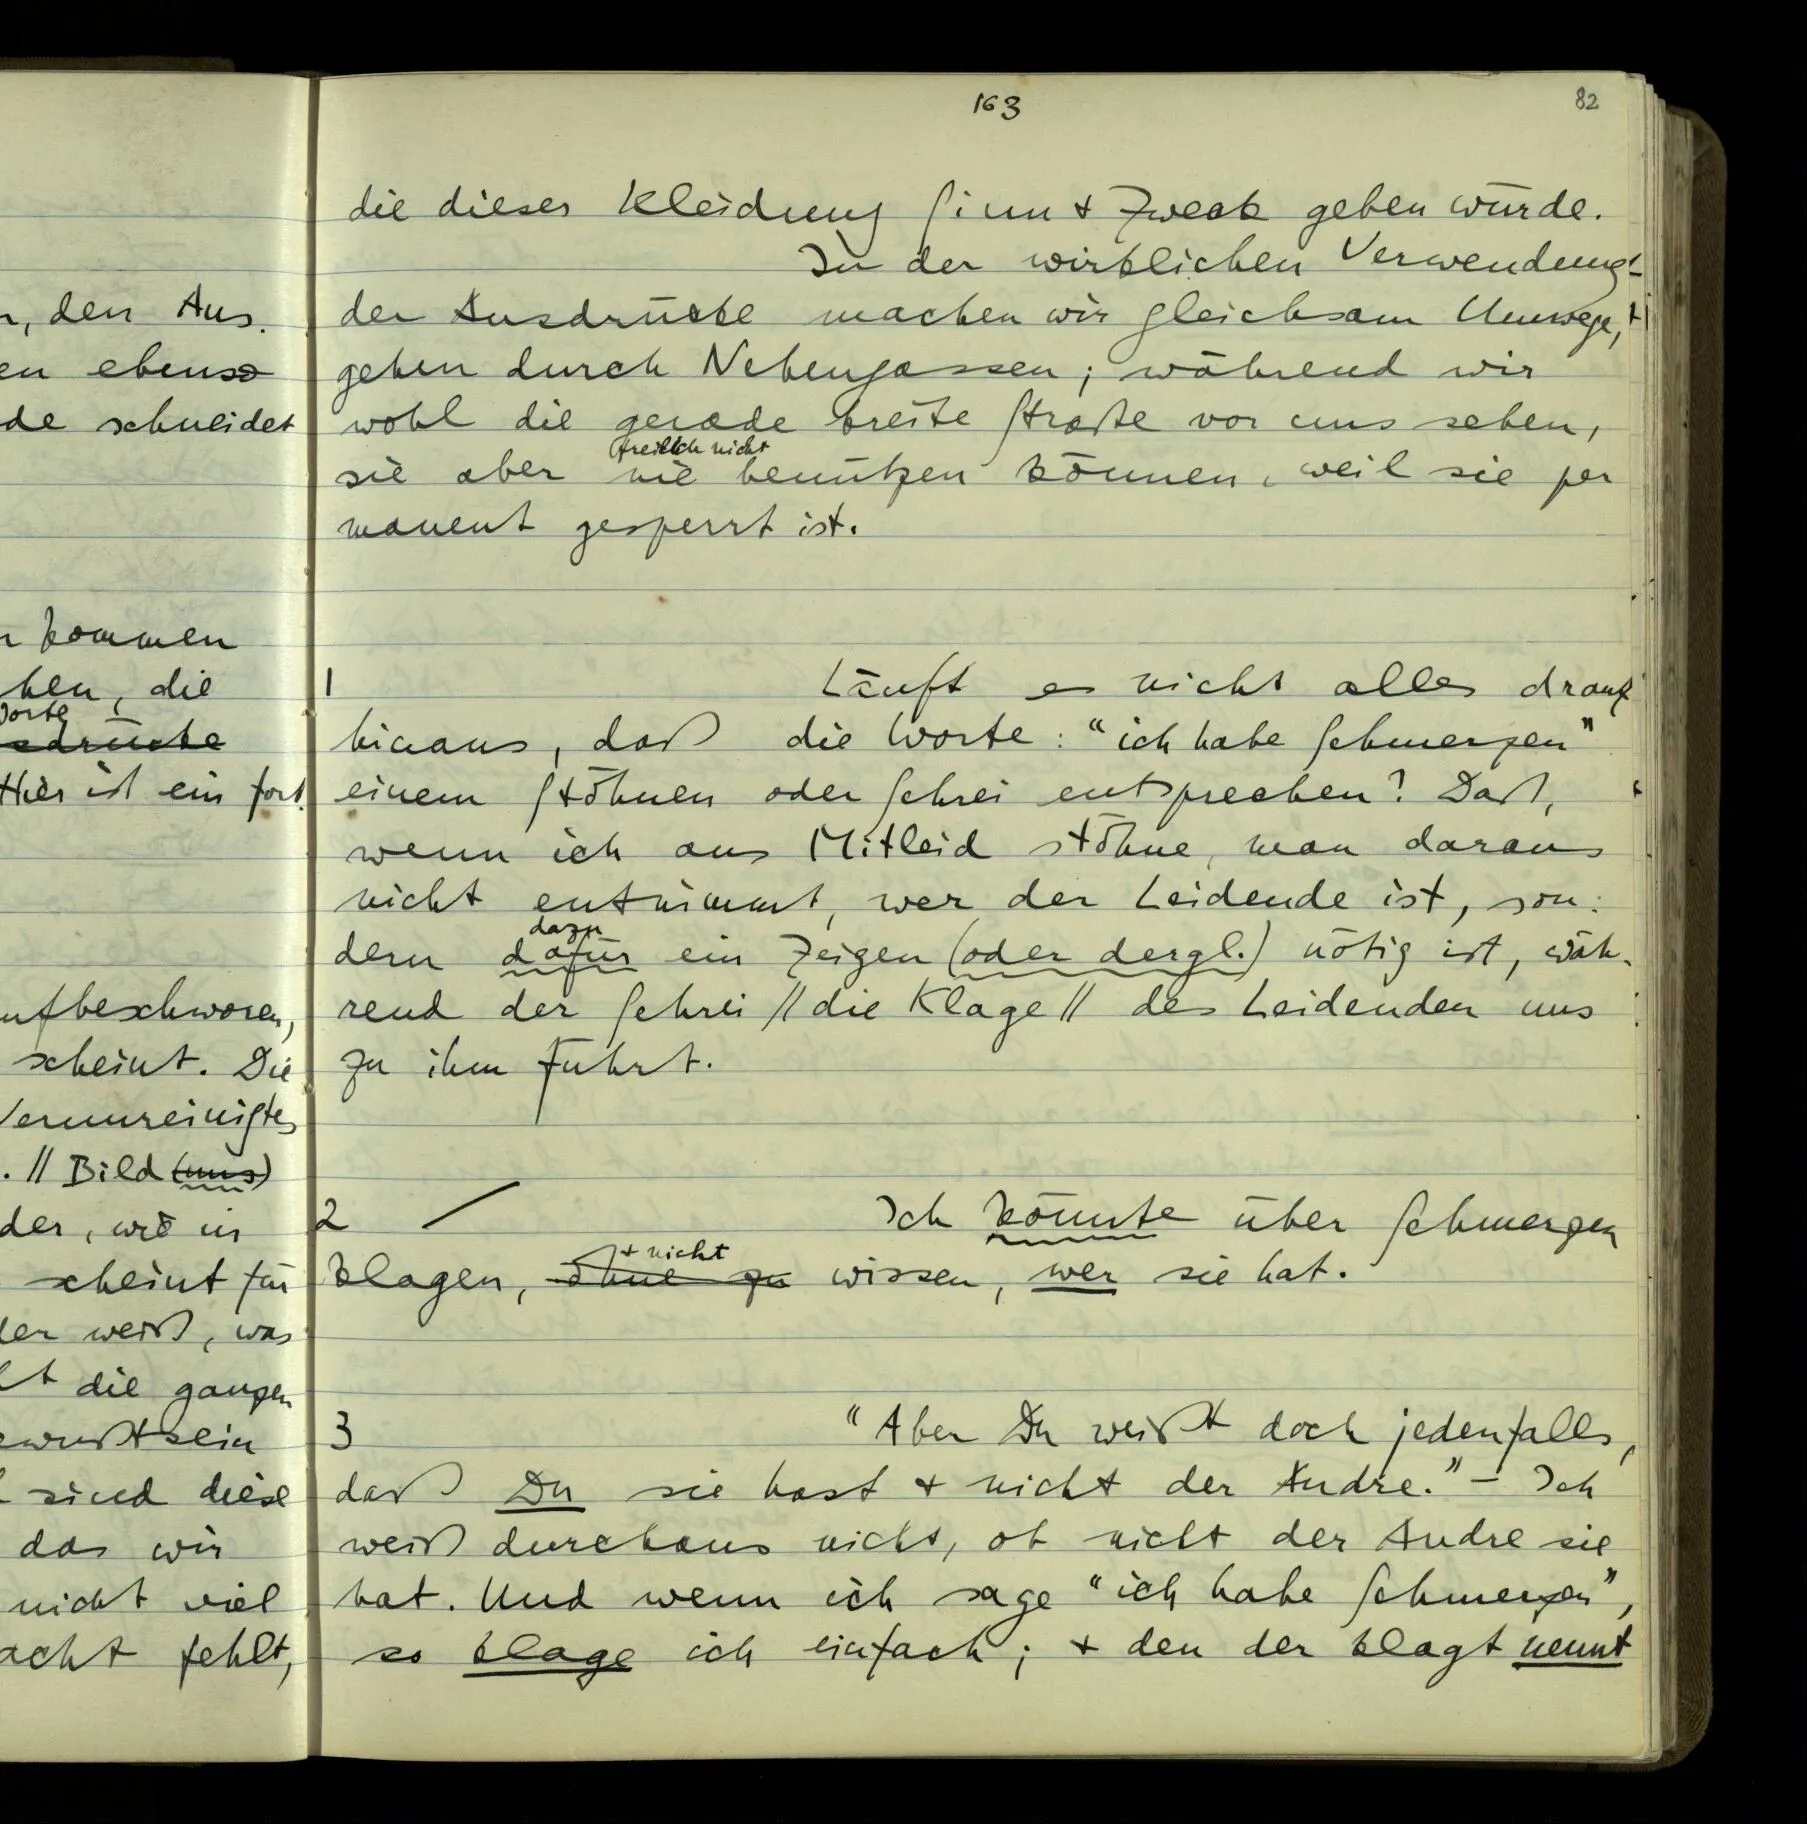 163
82
die dieser Kleidung Sinn + Zweck geben würde.
In der wirklichen Verwendung
der Ausdrücke machen wir gleichsam Umwege,
gehen durch Nebengassen; während wir
wohl die gerade breite Straße vor uns sehen,
freilich nicht
sie aber nie benützen können, weil sie per
manent gesperrt ist.
1 Läuft es nicht alles drauf
hinaus, daß die Worte: “ich habe Schmerzen”
einem Stöhnen oder Schrei entsprechen? Daß,
wenn ich aus Mitleid stöhne, man daraus
nicht entnimmt, wer der Leidende ist, son:
dazu
dern dafür ein Zeigen (oder dergl.) nötig ist, wäh-
rend der Schrei // die Klage // des Leidenden uns
zu ihm führt.
2 / Ich könnte über Schmerzen
+ nicht
klagen, ohne zu wissen, wer sie hat.
3 “Aber Du weißt doch jedenfalls,
daß Du sie hast + nicht der Andre.” – Ich
weiß durchaus nicht, ob nicht der Andre sie
hat. Und wenn ich sage “ich habe Schmerzen”,
so klage ich einfach; + den der klagt nennt
den Aus.
en ebenso
de schneidet
kommen
hen, die
Worte
sdrücke
Hier ist ein fort.
ufbeschworen,
scheint. Die
Verunreinigtes
. // Bild (uns)
der, wie in
scheint für
der weiß, was
die ganzen
ewußtsein
sind diese
das wir
nicht viel
acht fehlt,